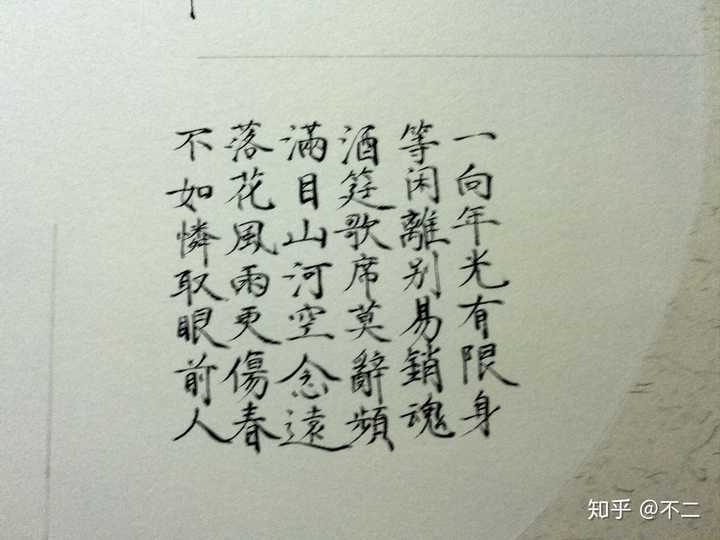 一向年光有限身
等闲離别易銷魂
酒筵歌席莫辭頻
滿目山河空念遠
落花風雨更傷春
不如憐取眼前人
知乎 @不二